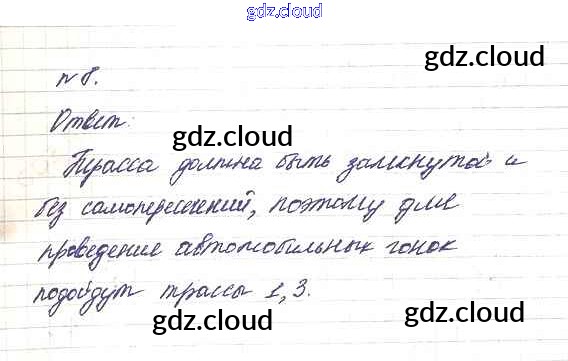 gdz.cloud
gdz.cloud
№ 8.
Ответ:
gdz.cloud
Трасса должна быть замкнутой и
без самопересечений, поэтому для
проведение автомобильных гонок
подойдут трассы 1, 3.
gdz.cloud
gdz.cloud